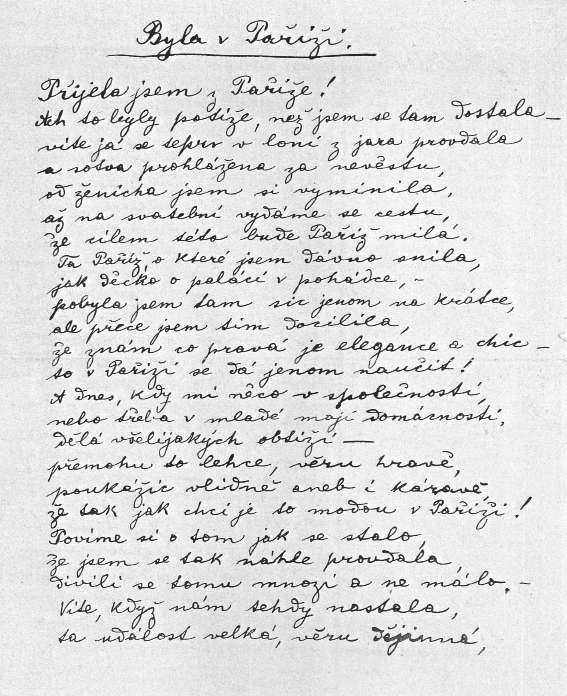 Byla v Paříži.
Přijela jsem z Paříže!
Ach to byly potíže, než jsem se tam dostala –
víte já se teprv v loni z jara provdala
a sotva prohlážena za nevěstu,
od ženicha jsem si vymínila,
až na svatební vydáme se cestu,
že cílem této bude Paříž milá.
Ta Paříž, o které jsem dávno snila,
jak děcko o paláci v pohádce, –
pobyla jsem tam sic jenom na krátce,
ale přece jsem tím docílila,
že znám co pravá je elegance a chic –
to v Paříži se dá jenom naučit!
A dnes, kdy mi něco v společnosti,
nebo třeba v mladé mojí domácnosti,
dělá všelijakých obtíží –
přemohu to lehce, věru hravě,
poukážíc vlídně aneb i káravě,
že tak jak chci je to modou v Paříži!
Povíme si o tom jak se stalo,
že jsem se tak náhle provdala,
divili se tomu mnozí a ne málo. –
Víte, když nám tehdy nastala,
ta událost velká, věru dějinná,